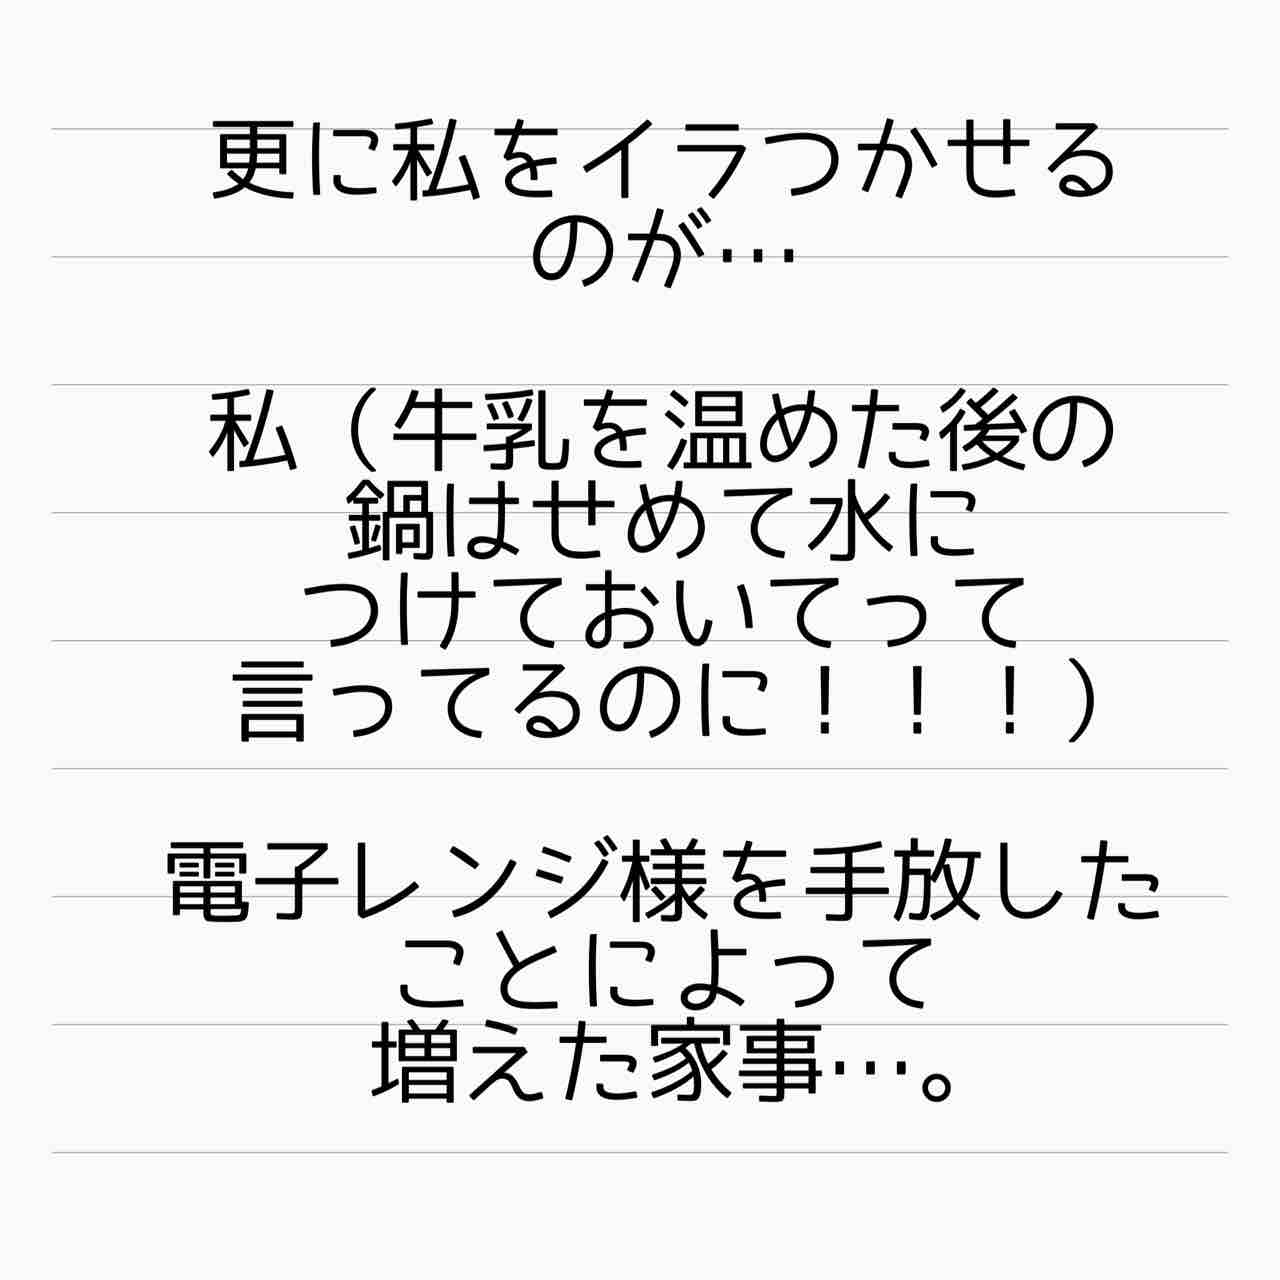 更に私をイラつかせる
のが…
私（牛乳を温めた後の
鍋はせめて水に
つけておいてって
言ってるのに！！！）
電子レンジ様を手放した
ことによって
増えた家事…。